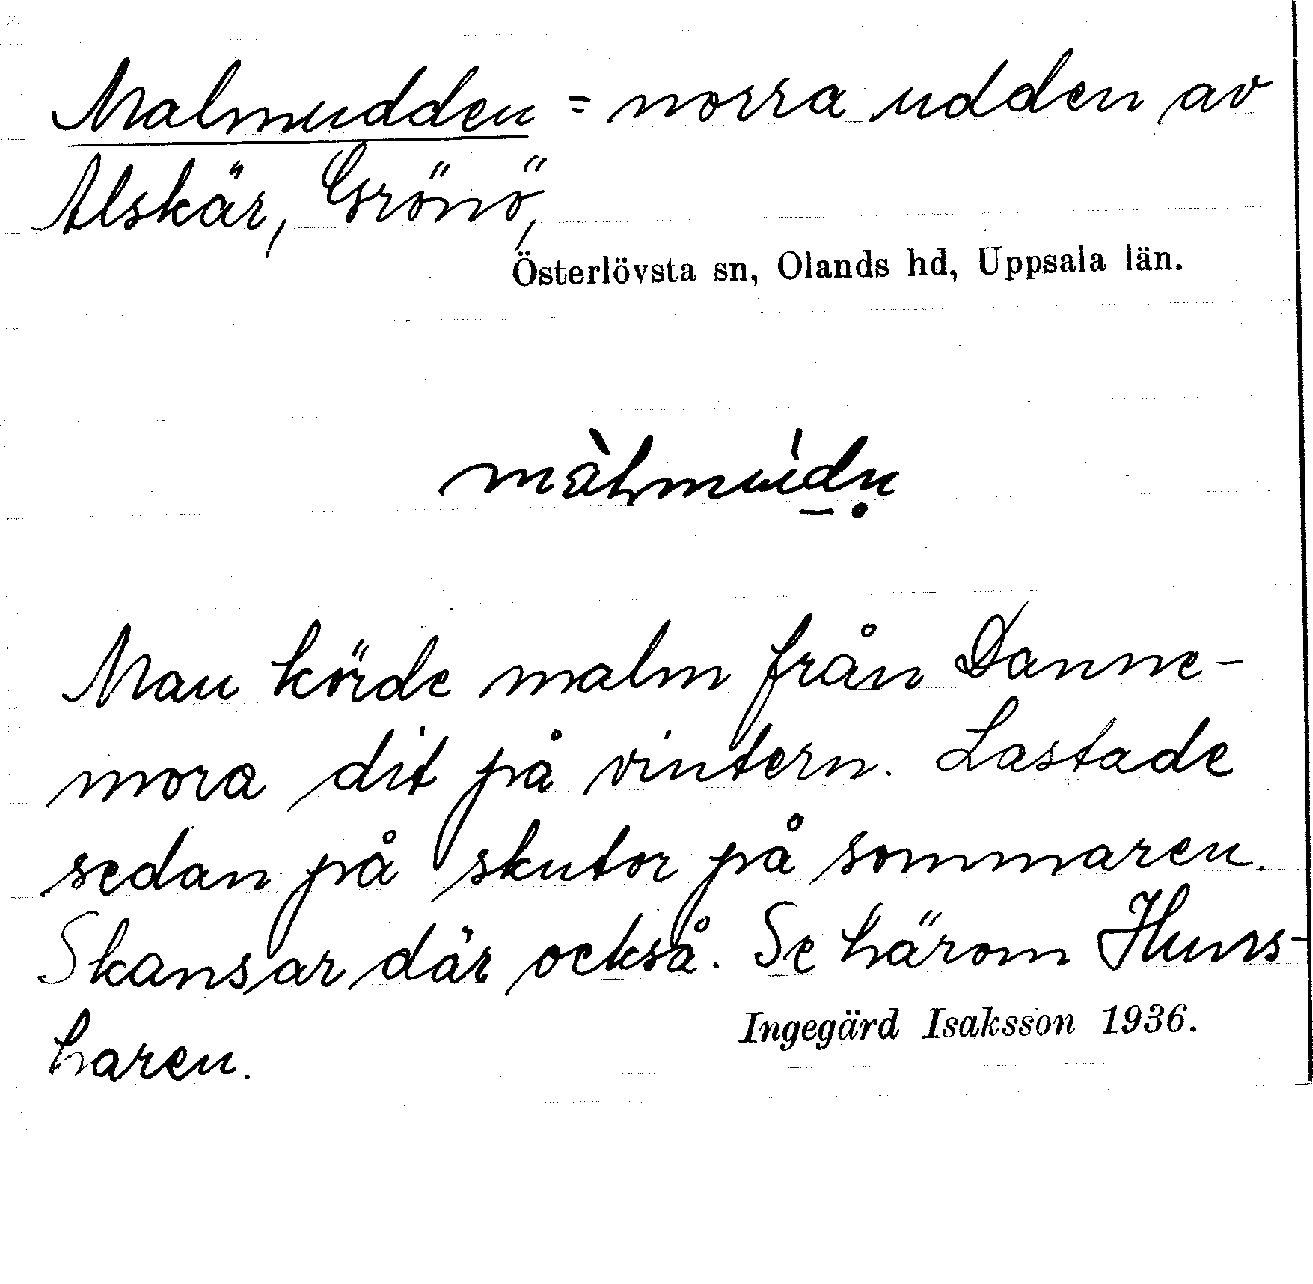 Malmudden = norra udden av
Alskär, Grönö,
Österlövsta sn, Olands hd, Uppsala län.
Man körde malm från Danne-
mora dit på vintern. Lastade
sedan på skutor på sommaren.
Skansar där också. Se härom Huns-
haren.
Ingegärd Isaksson 1936.